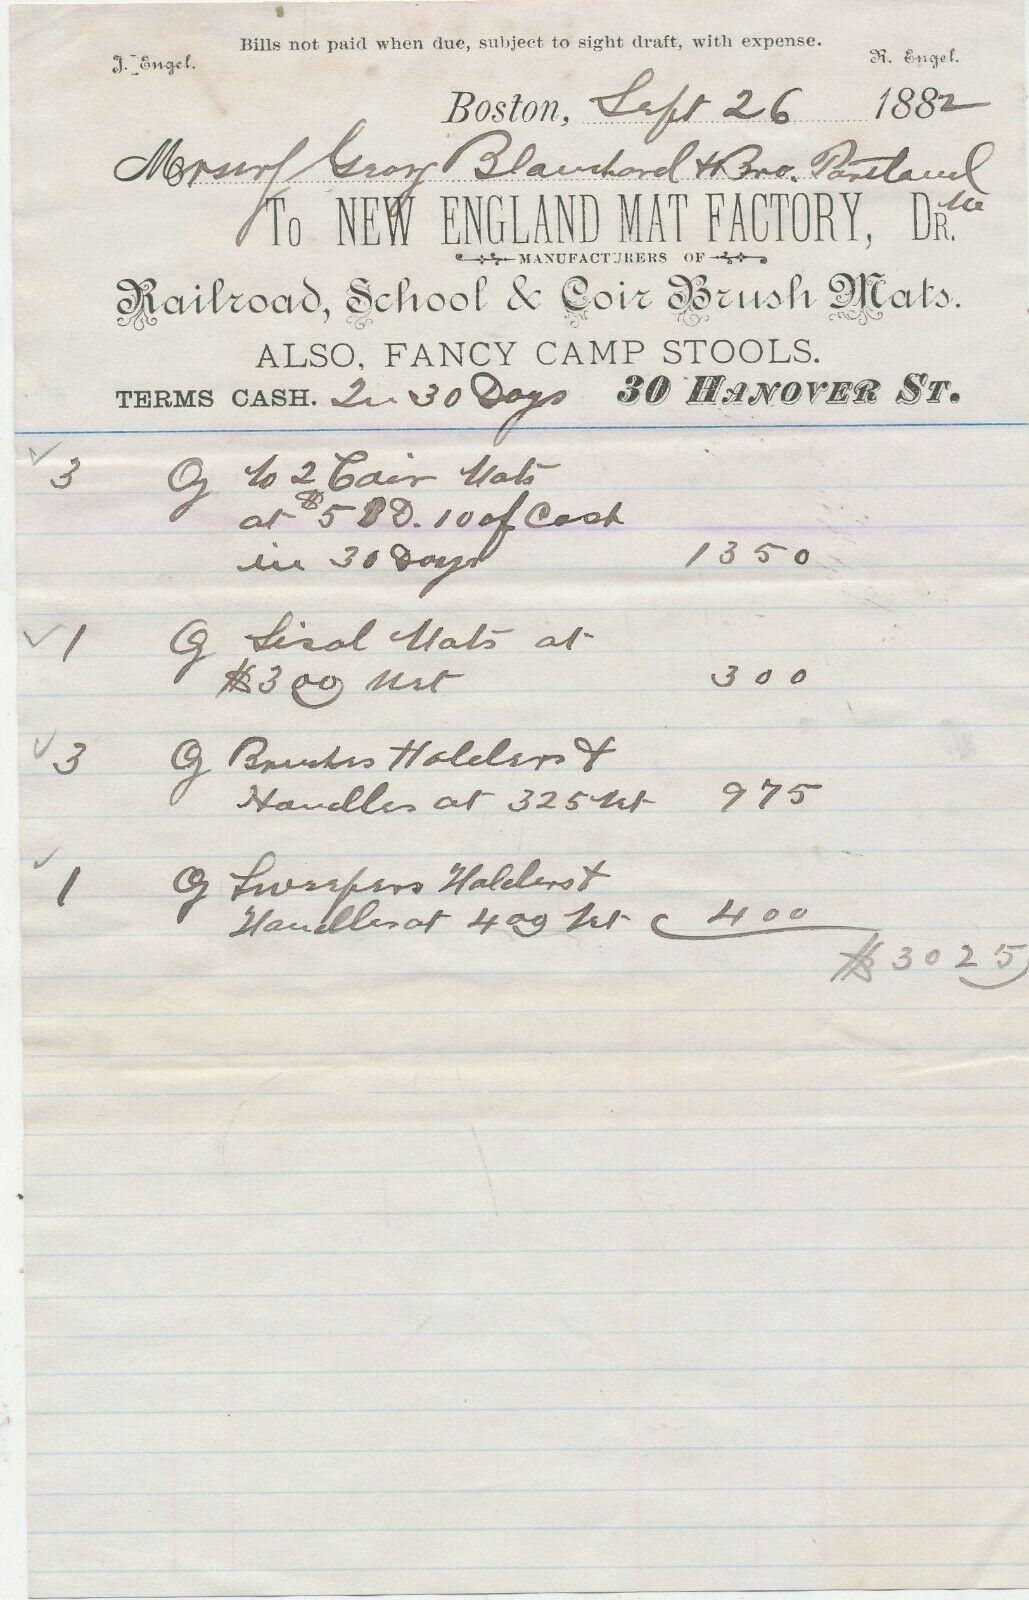 Bills not paid when due, subject to sight draft, with expense.
J. Engel. R. Engel.
Boston, Sept 26 1882
Messrs Geo Blanchard & Bro. Portland Me
To NEW ENGLAND MAT FACTORY, Dr.
MANUFACTURERS OF
Railroad, School & Coir Brush Mats.
ALSO, FANCY CAMP STOOLS.
TERMS CASH. In 30 Days 30 HANOVER ST.
3 No 2 Coir Mats
at $5 D. 10 of Cash
in 30 Days 13 50
1 Sisal Mats at
$3 00 Net 3 00
3 Brushes Holders &
Handles at 3 25 Net 9 75
1 Sweepers Holders &
Handles at 4 00 Net 4 00
$ 30 25